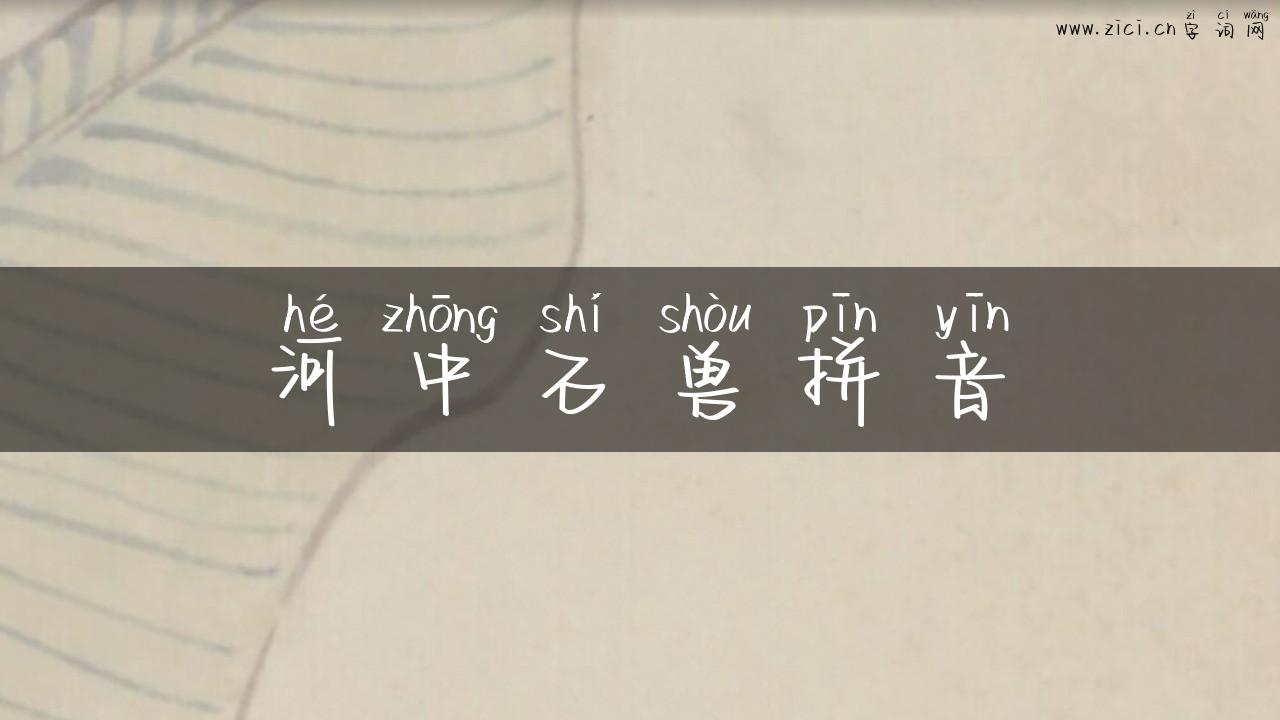 zì cí wǎng
www.zici.cn 字 词 网
hé zhōng shí shòu pīn yīn
河 中 石 兽 拼 音